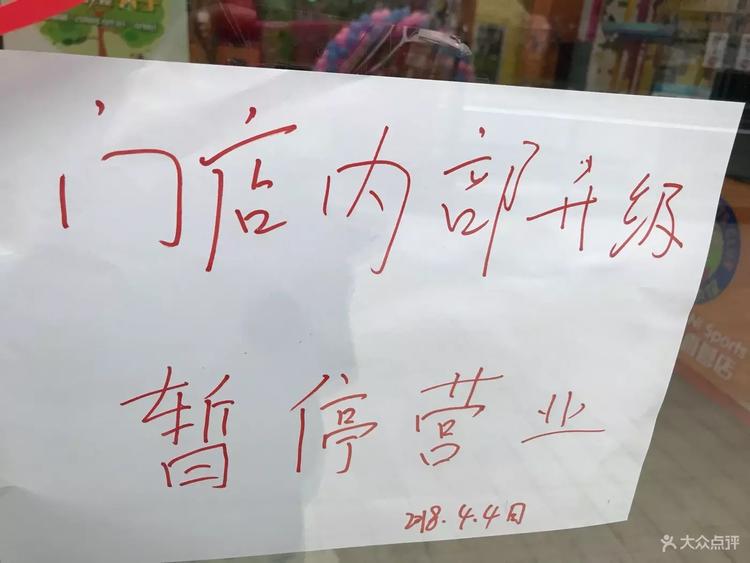 门店内部升级
暂停营业
2018.4.4日
Sports
大众点评